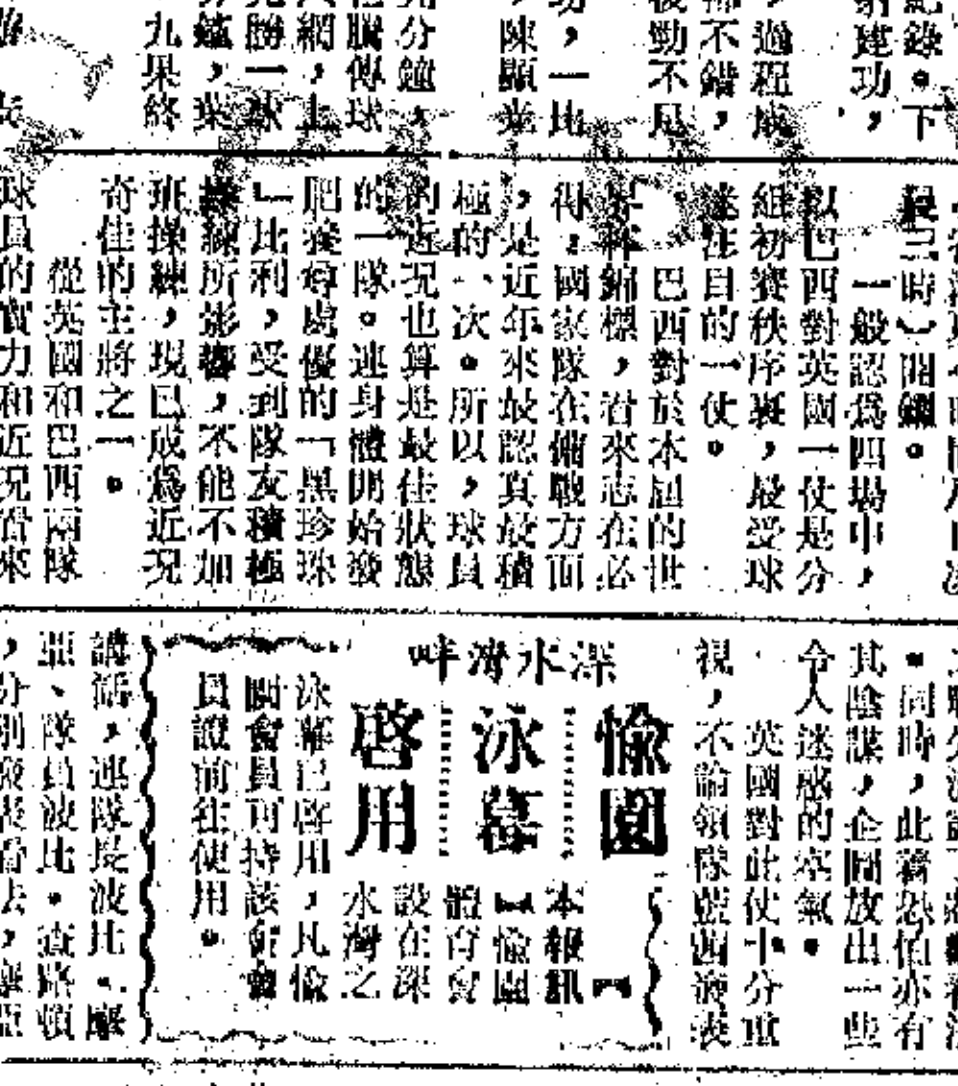 紀錄。下
射建功，
，過程成
不錯，
後勁不足
功，一比
，陳顯光
分鐘，
傳球
網，上
勝一球
，葉
九果終
最三時）開鑼。
一般認爲四場中，
以巴西對英國一仗是分
組初賽秩序裏，最受球
迷注目的一仗。
巴西對於本屆的世
界杯錦標，看來志在必
得，國家隊在備戰方面
，是近年來最認真最積
極的一次。所以，球員
的近況也算是最佳狀態
的一隊。連身體開始發
肥養尊處優的「黑珍珠
」比利，受到隊友積極
操練所影響，不能不加
班操練，現已成爲近況
奇佳的主將之一。
從英國和巴西兩隊
球員的實力和近況看來
，同時，此著恐怕亦有
其陰謀，企圖放出一些
令人迷惑的空氣。
英國對此仗十分重
視，不論領隊藍西爵表
深水灣畔
愉園
泳幕
啓用
【本報訊】
愉園
體育會
設在深
水灣之
泳幕已啓用，凡愉
園會員可持該會會
員證前往使用。
講話，連隊長波比。摩
亞、隊員波比。查路頓
，分別發表看法，